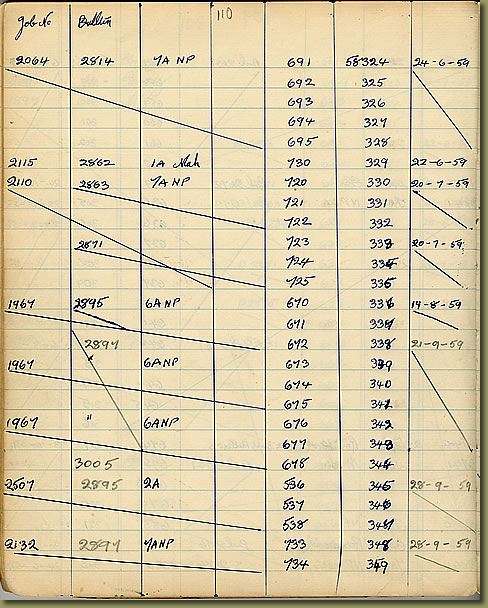 110
Job No Bullion
2064 2814 7A NP 691 58324 24-6-59
692 325
693 326
694 327
695 328
2115 2862 1A 730 329 22-6-59
2110 2863 7A NP 720 330 20-7-59
721 331
722 332
2871 723 333 20-7-59
724 334
725 335
1967 2895 6ANP 670 336 19-8-59
671 337
2897 672 338 21-9-59
1967 " 6ANP 673 339
674 340
675 341
1967 " 6ANP 676 342
677 343
3005 678 344
2507 2895 2A 536 345 28-9-59
537 346
538 347
2132 2897 7ANP 733 348 28-9-59
734 349